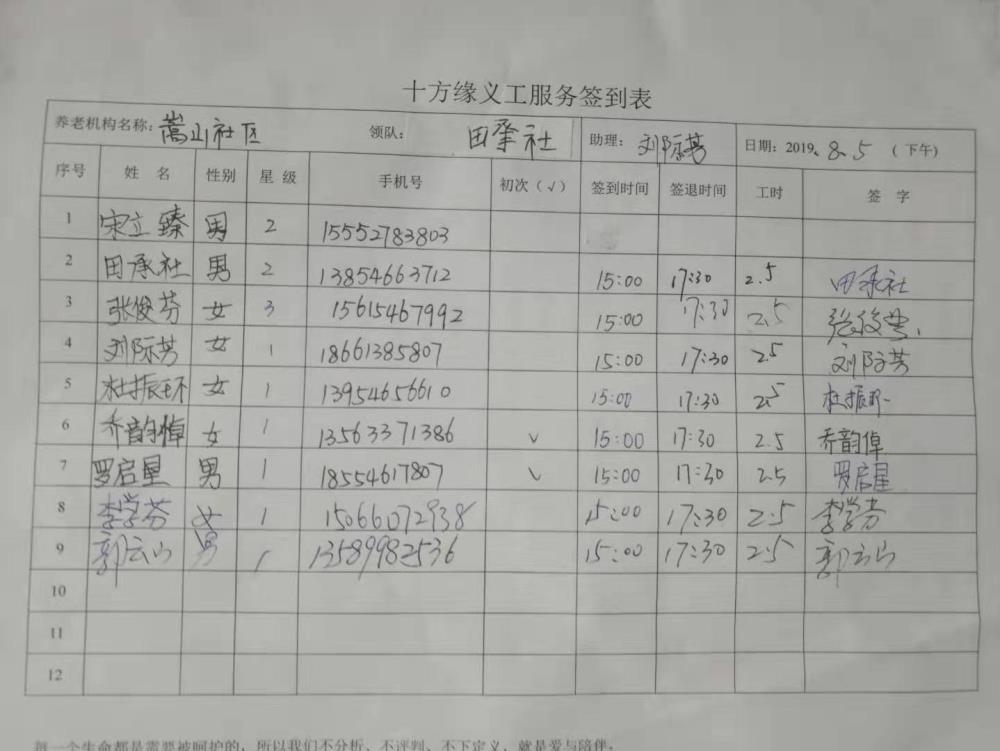 十方缘义工服务签到表
养老机构名称：嵩山社区 领队： 田承社 助理： 刘际芳 日期：2019.8.5 （下午）
序号 姓 名 性别 星 级 手机号 初次（√） 签到时间 签退时间 工时 签 字
1 宋立臻 男 2 15552783803
2 田承社 男 2 13854663712 15:00 17:30 2.5 田承社
3 张俊芬 女 3 15615467992 15:00 17:30 2.5 张俊芬
4 刘际芳 女 1 18661385807 15:00 17:30 2.5 刘际芳
5 杜振环 女 1 13954656610 15:00 17:30 2.5 杜振环
6 乔韵倬 女 1 13563371386 √ 15:00 17:30 2.5 乔韵倬
7 罗启星 男 1 18554617807 √ 15:00 17:30 2.5 罗启星
8 李学芬 女 1 15066072938 15:00 17:30 2.5 李学芬
9 郭云山 男 1 13589982536 15:00 17:30 2.5 郭云山
10
11
12
每一个生命都是需要被呵护的，所以我们不分析、不评判、不下定义，就是爱与陪伴。